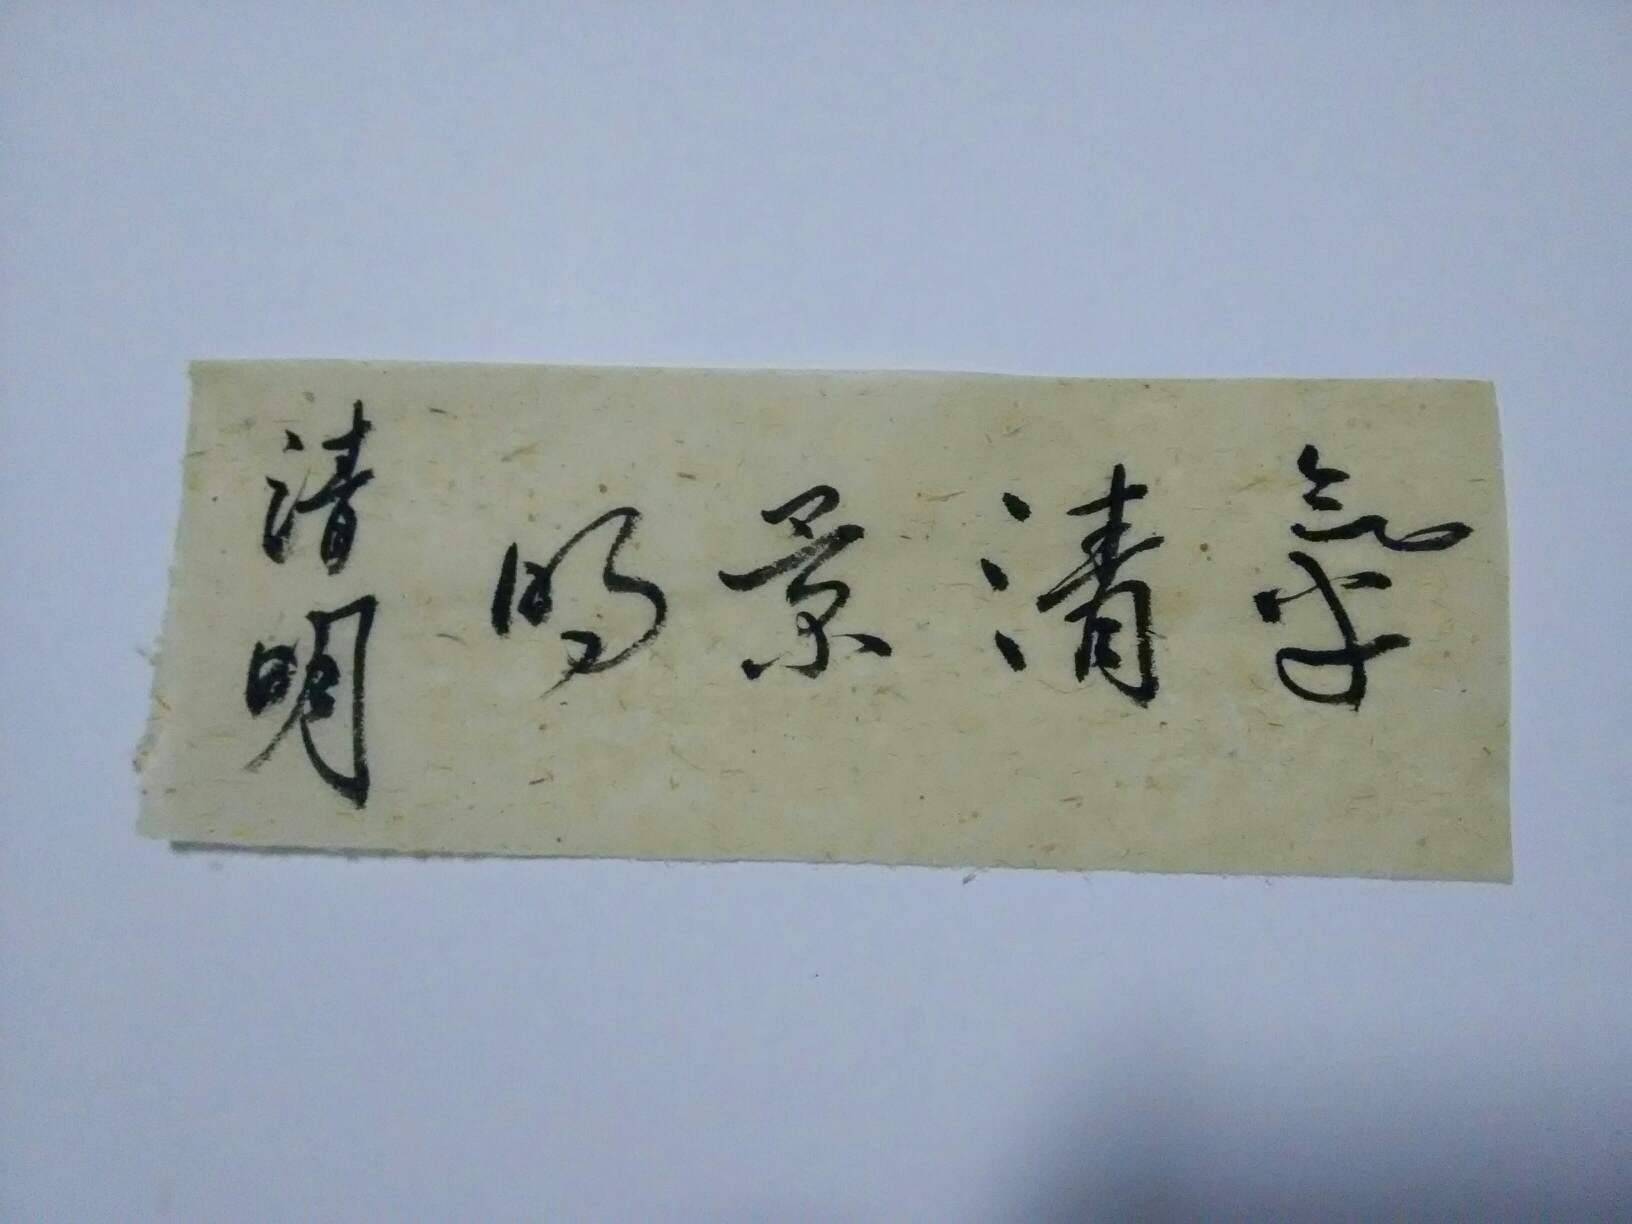 氣清景明
清明